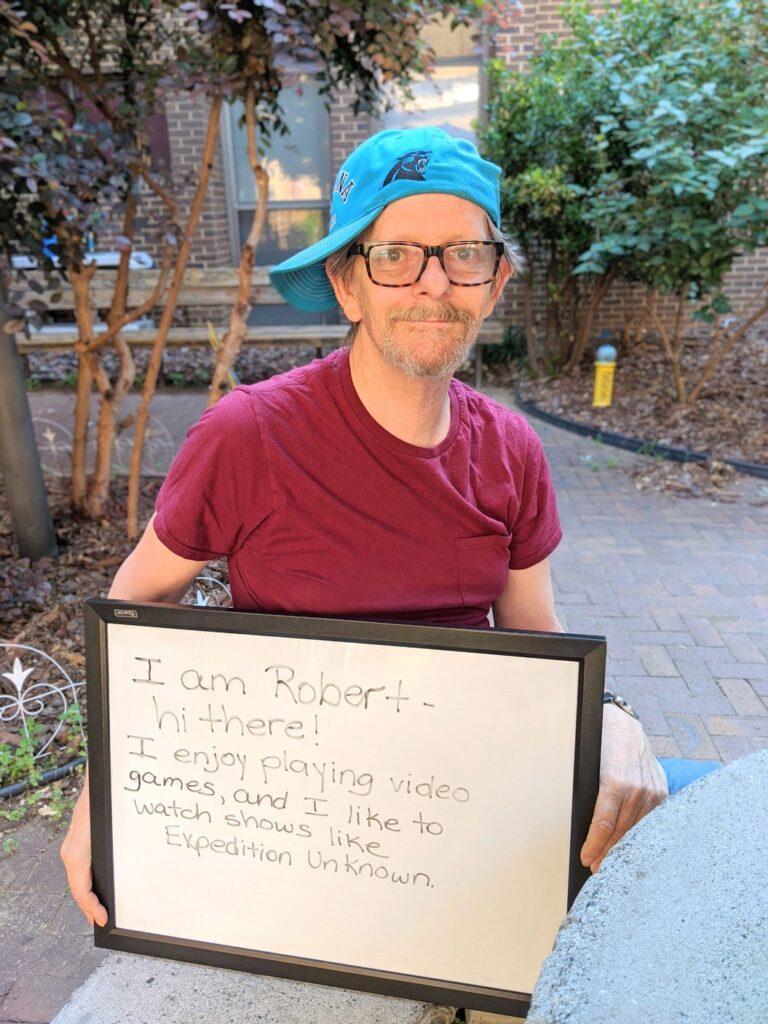 NA
I am Robert -
hi there!
I enjoy playing video
games, and I like to
watch shows like
Expedition Unknown.